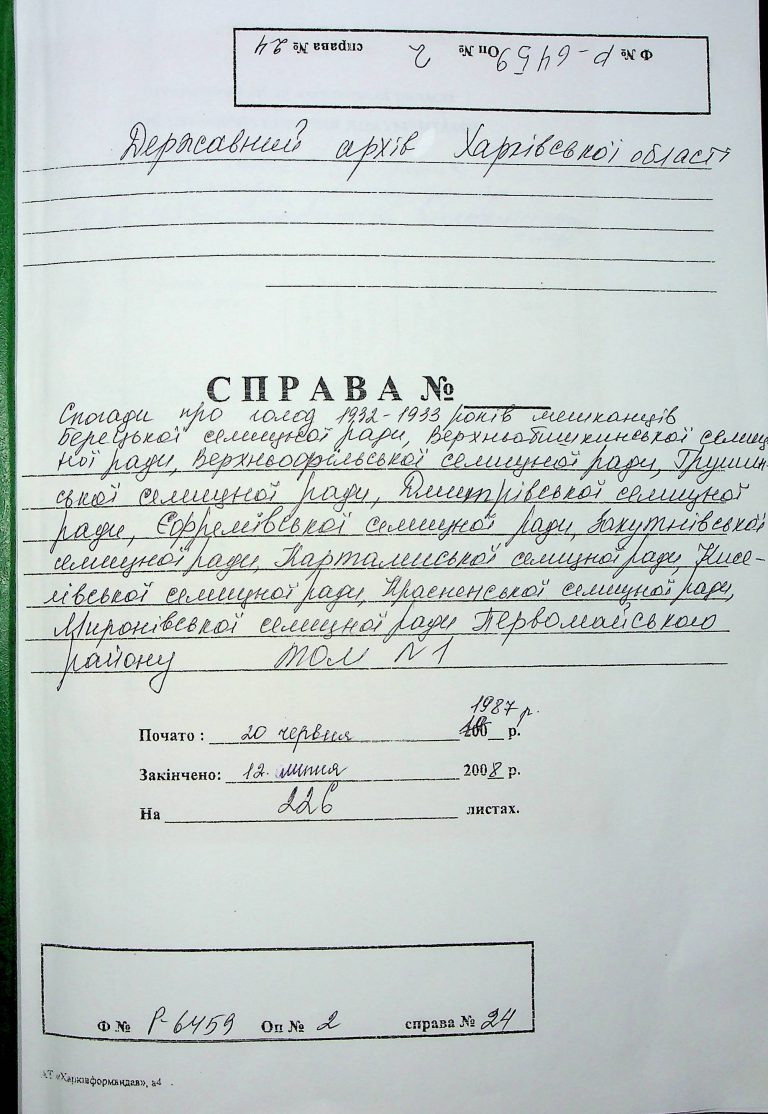 Ф № Р-6459 Оп № 2 справа № 24
Державний архів Харківської області
СПРАВА №
Спогади про голод 1932-1933 років мешканців
Берецької селищної ради, Верхньобишкинської селищ
ної ради, Верхньоорільської селищної ради, Грушин-
ської селищної ради, Дмитрівської селищної
ради, Єфремівської селищної ради, Закутнівської
селищної ради, Картамиської селищної ради, Кисе-
лівської селищної ради, Красненської селищної ради,
Миронівської селищної ради Первомайського
району ТОМ N 1
1987 р.
Почато : 20 червня 200 р.
Закінчено: 12 липня 2008 р.
На 226 листах.
Ф № Р-6459 Оп № 2 справа № 24
АТ «Харківформандав», а4